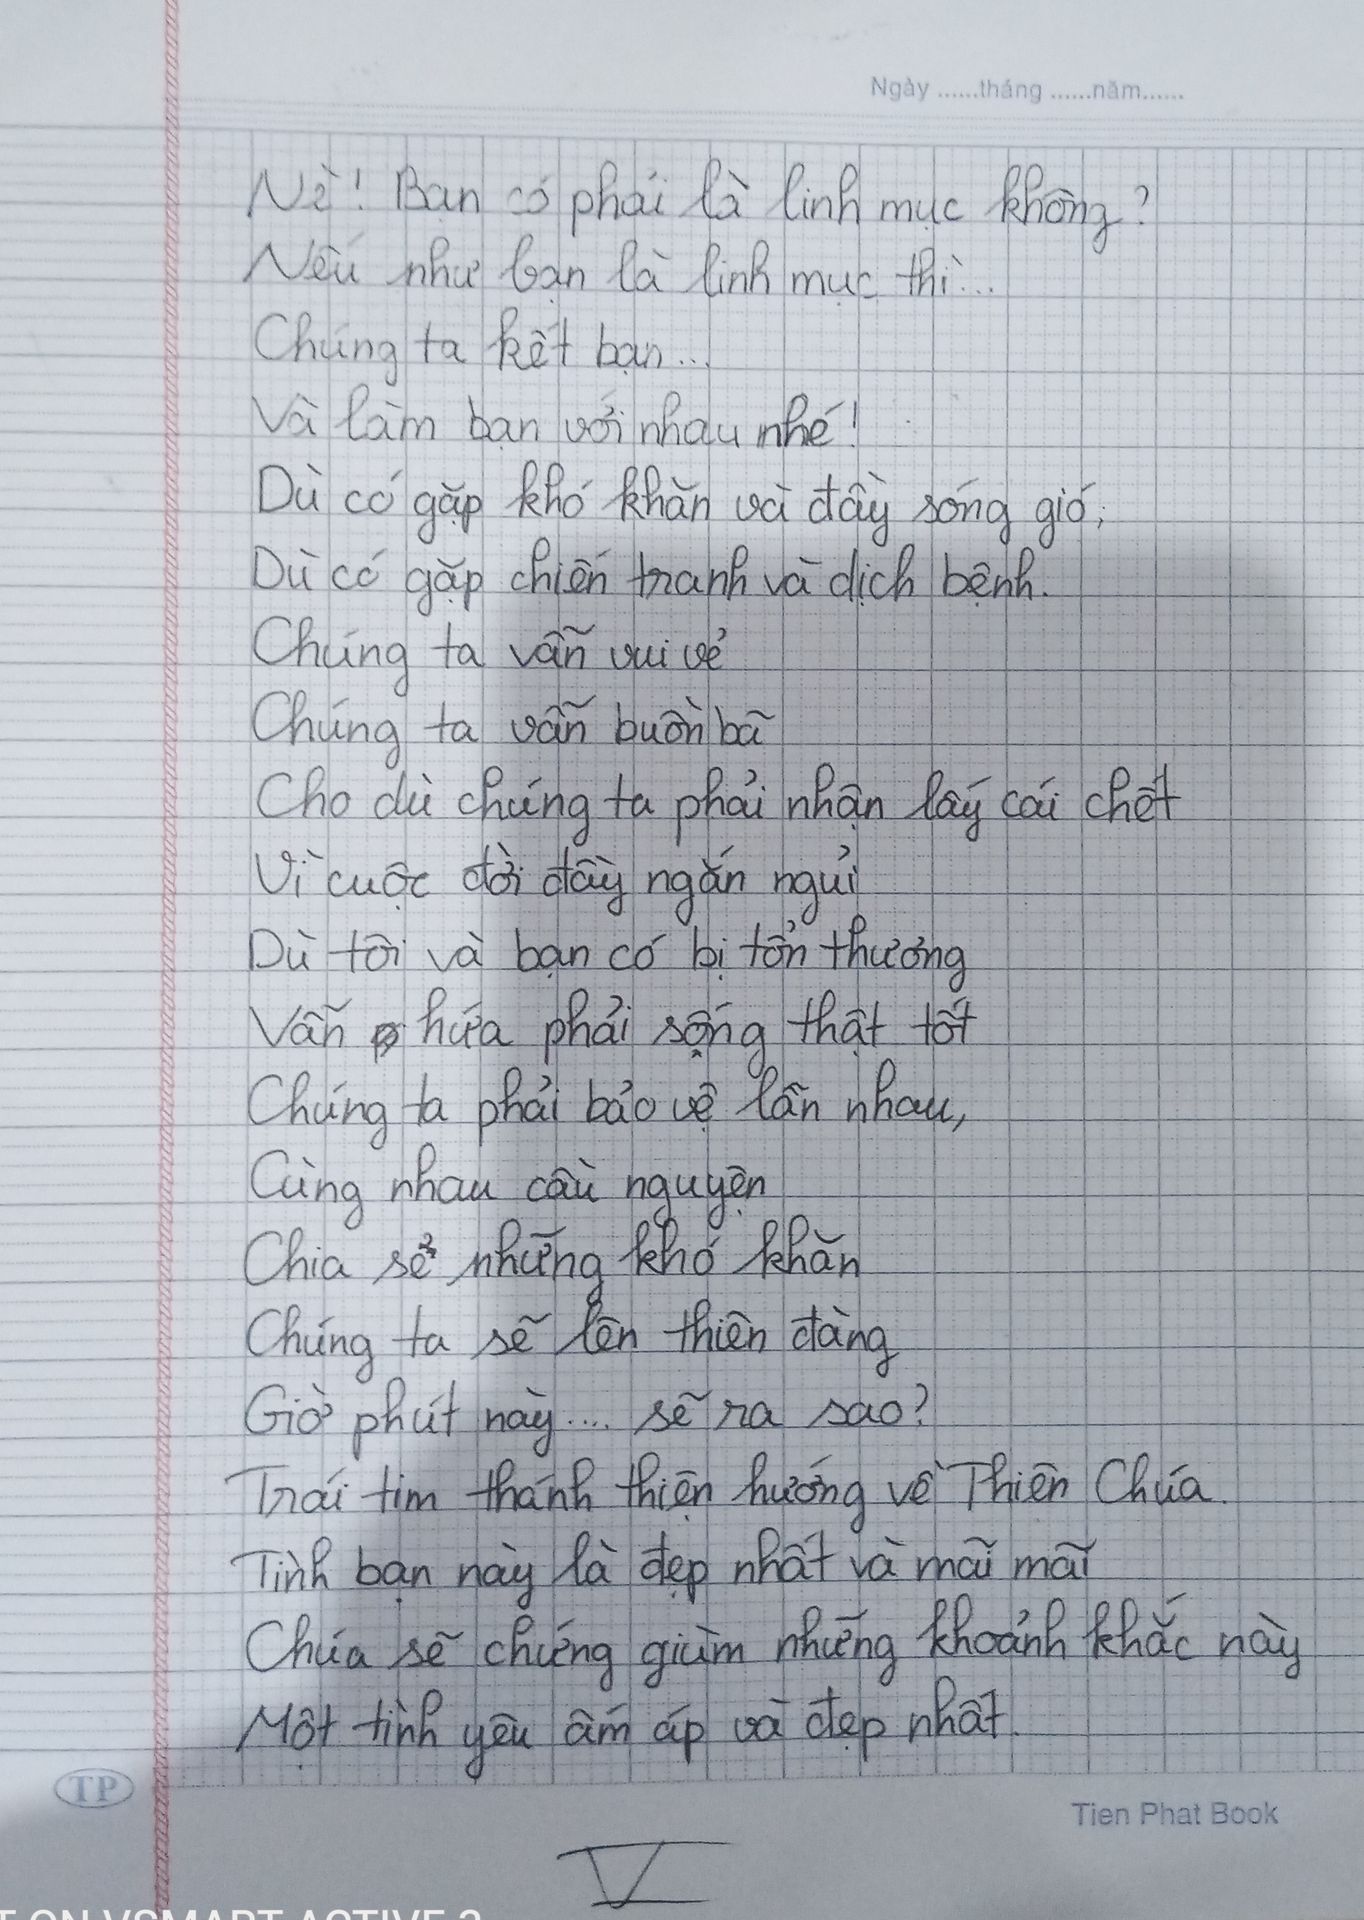 Ngày ......tháng ......năm......
Nè! Bạn có phải là linh mục không?
Nếu như bạn là linh mục thì...
Chúng ta kết bạn...
Và làm bạn với nhau nhé!
Dù có gặp khó khăn và đầy sóng gió,
Dù có gặp chiến tranh và dịch bệnh.
Chúng ta vẫn vui vẻ
Chúng ta vẫn buồn bã
Cho dù chúng ta phải nhận lấy cái chết
Vì cuộc đời đầy ngắn ngủi
Dù tôi và bạn có bị tổn thương
Vẫn hứa phải sống thật tốt
Chúng ta phải bảo vệ lẫn nhau,
Cùng nhau cầu nguyện
Chia sẻ những khó khăn
Chúng ta sẽ lên thiên đàng
Giờ phút này.... sẽ ra sao?
Trái tim thánh thiện hướng về Thiên Chúa.
Tình bạn này là đẹp nhất và mãi mãi
Chúa sẽ chứng giùm những khoảnh khắc này
Một tình yêu ấm áp và đẹp nhất.
TP
Tien Phat Book
V